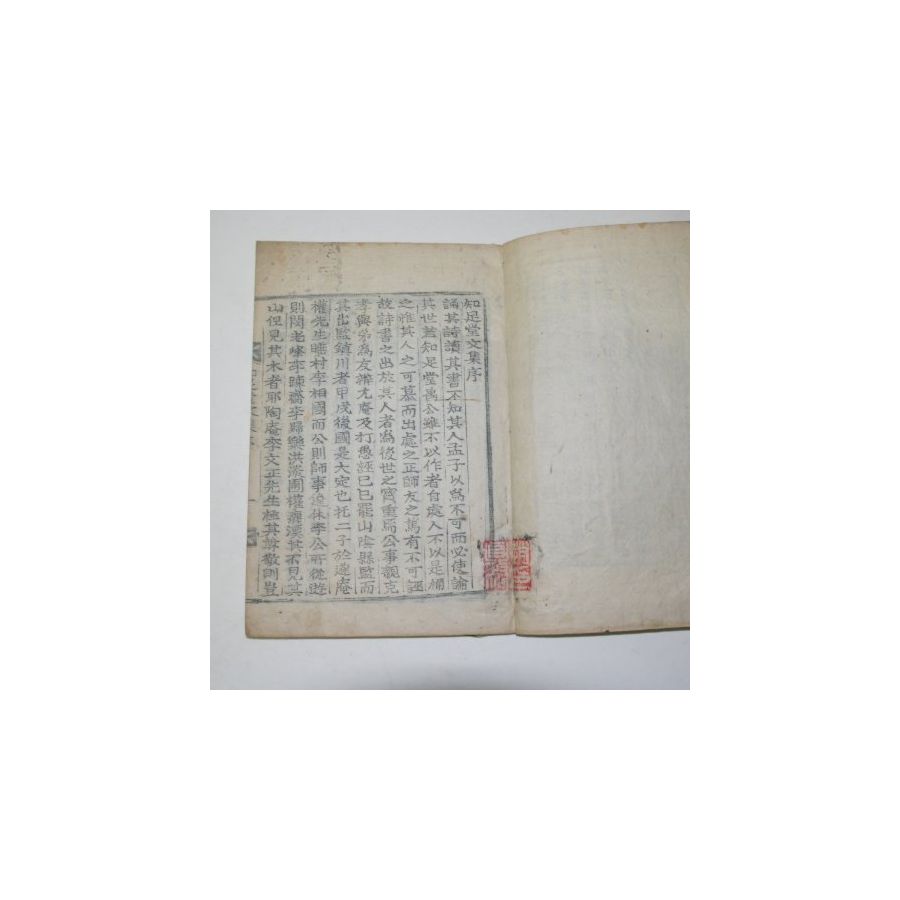 知足堂文集序
誦其詩讀其書不知其人孟子以爲不可而必使論
其世蓋知足堂禹公雖不以作者自處人不以是稱
之惟其人之可慕而出處之正師友之篤有不可誣
故詩書之出於其人者爲後世之寶重焉公事親克
孝與弟爲友辨尤庵及打愚誣己巳罷山陰縣監而
其出監鎭川者甲戌後國是大定也托二子於遂庵
權先生 村李相國而公則師事 休李公所從遊
則閔老峰李疎齋李歸樂洪 圃權 溪其不見其
山但見其木者耶陶庵李文正先生極其 敬則豈